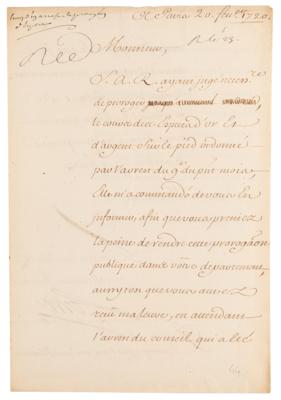 A Paris 20. fevrier 1720.
R. le 25.
Monsieur,
S. A. R. ayant jugé necessre
de proroger
le cours des Especes d'or et
d'argent sur le pied ordonné
par l'arrest du du put mois,
Elle m'a commandé de vous en
informer, afin que vous preniez
la peine de rendre cette prorogaon
publique dans votre departement,
aussytost que vous aurez
receu ma lettre, en attendant
l'arrest du conseil qui a eté